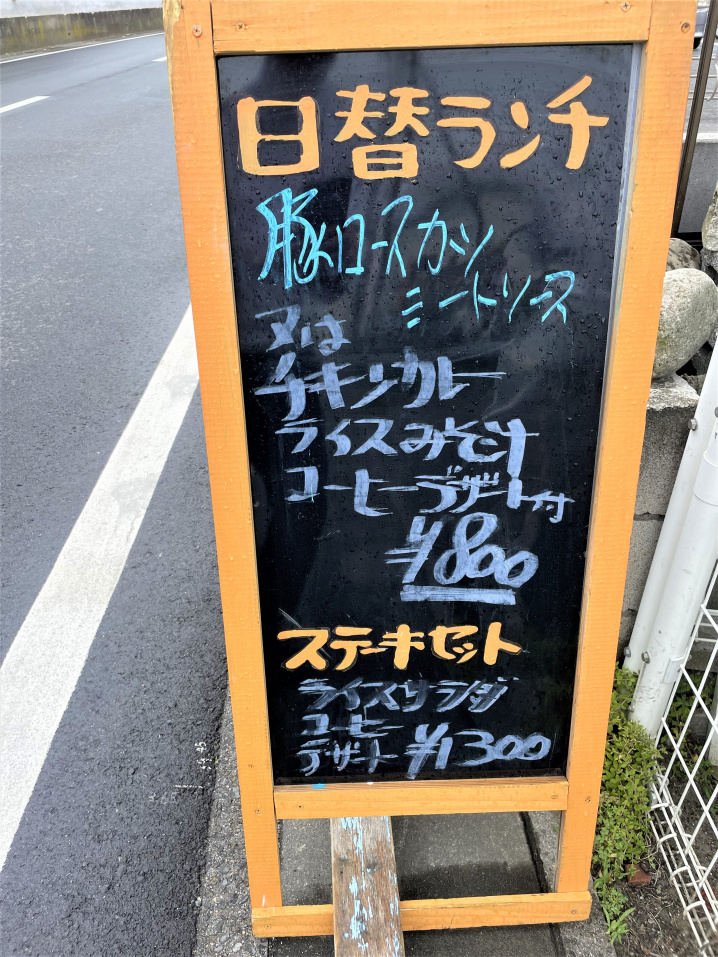 日替ランチ
豚ロースカツ
ミートソース
又は
チキンカレー
ライスみそ汁
コーヒーデザート付
¥800
ステーキセット
ライスサラダ
コーヒー
デザート ¥1300